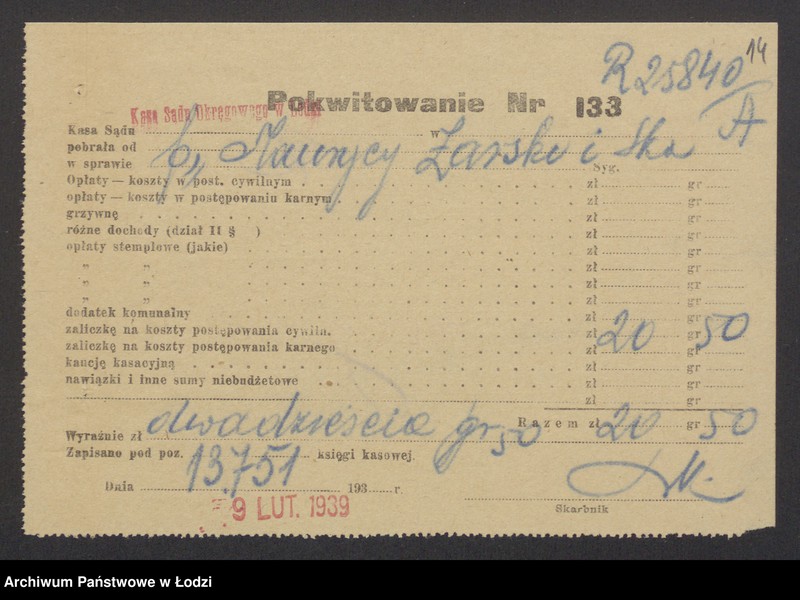 14
R 25840/A
Pokwitowanie Nr 133
Kasa Sądu Okręgowego w Łodzi
Kasa Sądu w
pobrała od f. „Maurycy Żarski i Ska
w sprawie Syg.
Opłaty — koszty w post. cywilnym zł gr
opłaty — koszty w postępowaniu karnym zł gr
grzywnę zł gr
różne dochody (dział II § ) zł gr
opłaty stemplowe (jakie) zł gr
„ „ zł gr
„ „ zł gr
„ „ zł gr
dodatek komunalny zł gr
zaliczkę na koszty postępowania cywiln. zł 20 gr 50
zaliczkę na koszty postępowania karnego zł gr
kaucję kasacyjną zł gr
nawiązki i inne sumy niebudżetowe zł gr
zł gr
Razem zł 20 gr 50
Wyraźnie zł dwadzieścia gr 50
Zapisano pod poz. 13751 księgi kasowej.
Dnia 193 r
9 LUT. 1939
Skarbnik
Archiwum Państwowe w Łodzi